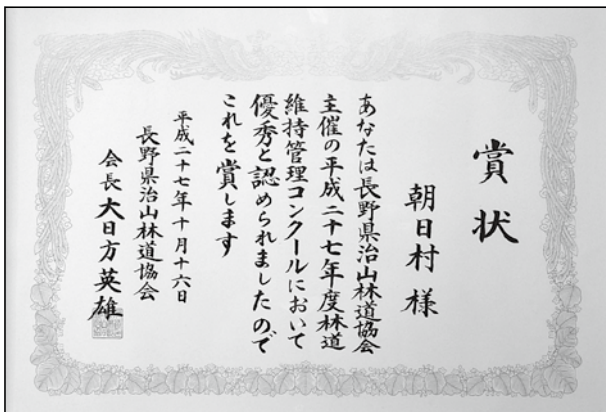 賞状
朝日村 様
あなたは長野県治山林道協会
主催の平成二十七年度林道
維持管理コンクールにおいて
優秀と認められましたので
これを賞します
平成二十七年十月十六日
長野県治山林道協会
会長 大日方英雄